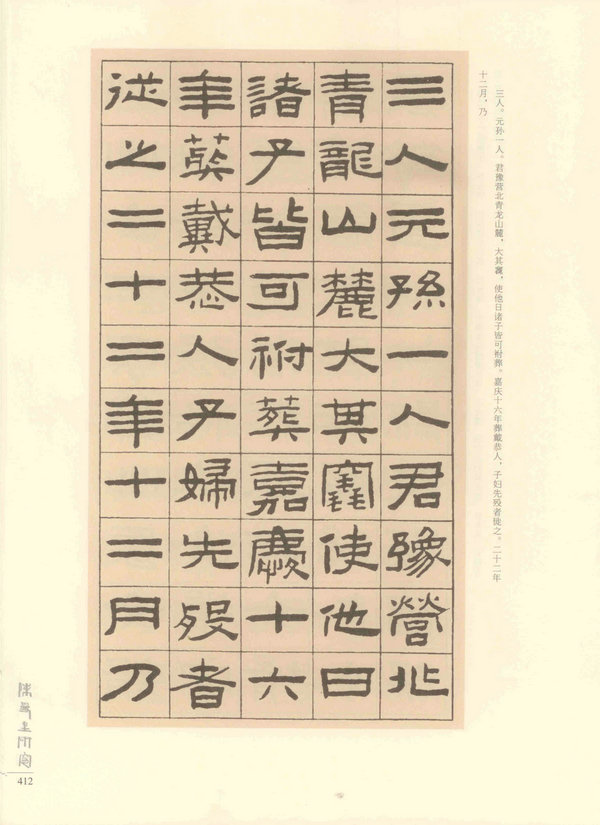 三人元孫一人君豫營北
青龍山麓大其竁使他日
諸子皆可祔葬嘉慶十六
年葬戴恭人子婦先歿者
從之二十二年十二月乃
三人。元孙一人。君豫营北青龙山麓,大其竁,使他日诸子皆可祔葬。嘉庆十六年葬戴恭人,子妇先殁者従之。二十二年
十二月,乃
412